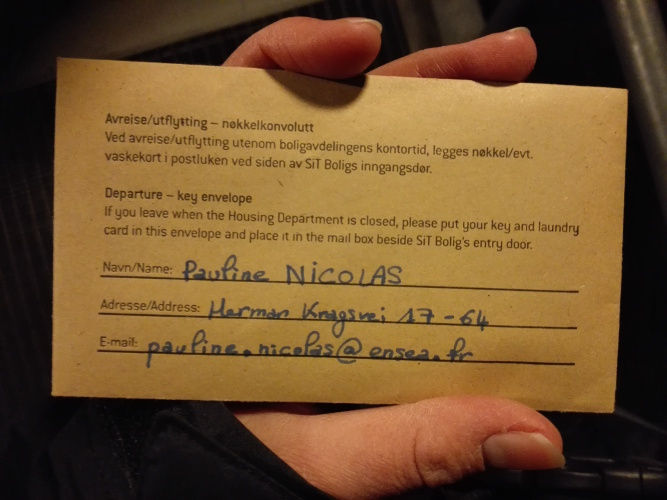 Avreise/utflytting – nøkkelkonvolutt
Ved avreise/utflytting utenom boligavdelingens kontortid, legges nøkkel/evt.
vaskekort i postluken ved siden av SiT Boligs inngangsdør.
Departure – key envelope
If you leave when the Housing Department is closed, please put your key and laundry
card in this envelope and place it in the mail box beside SiT Bolig's entry door.
Navn/Name: Pauline NICOLAS
Adresse/Address: Herman Kragsvei 17-64
E-mail: pauline.nicolas@ensea.fr